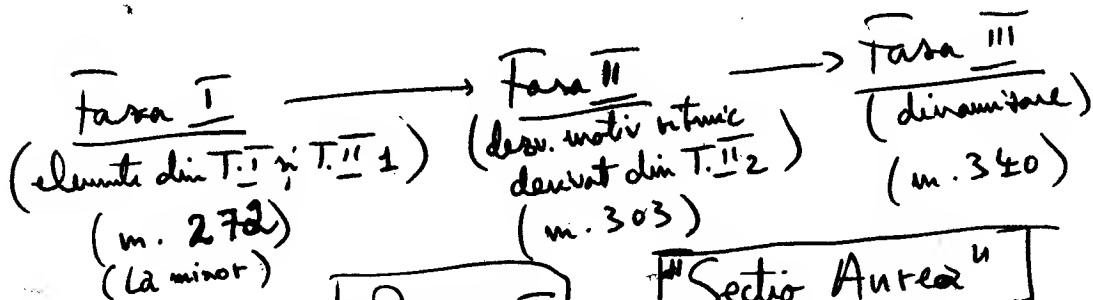 Faza I → Faza II → Faza III
(elemente din T.I și T.II 1)
(m. 272)
(La minor)
(dezv. motiv ritmic
derivat din T.II 2)
(m. 303)
(dinamizare)
(m. 340)
"Sectio Aurea"